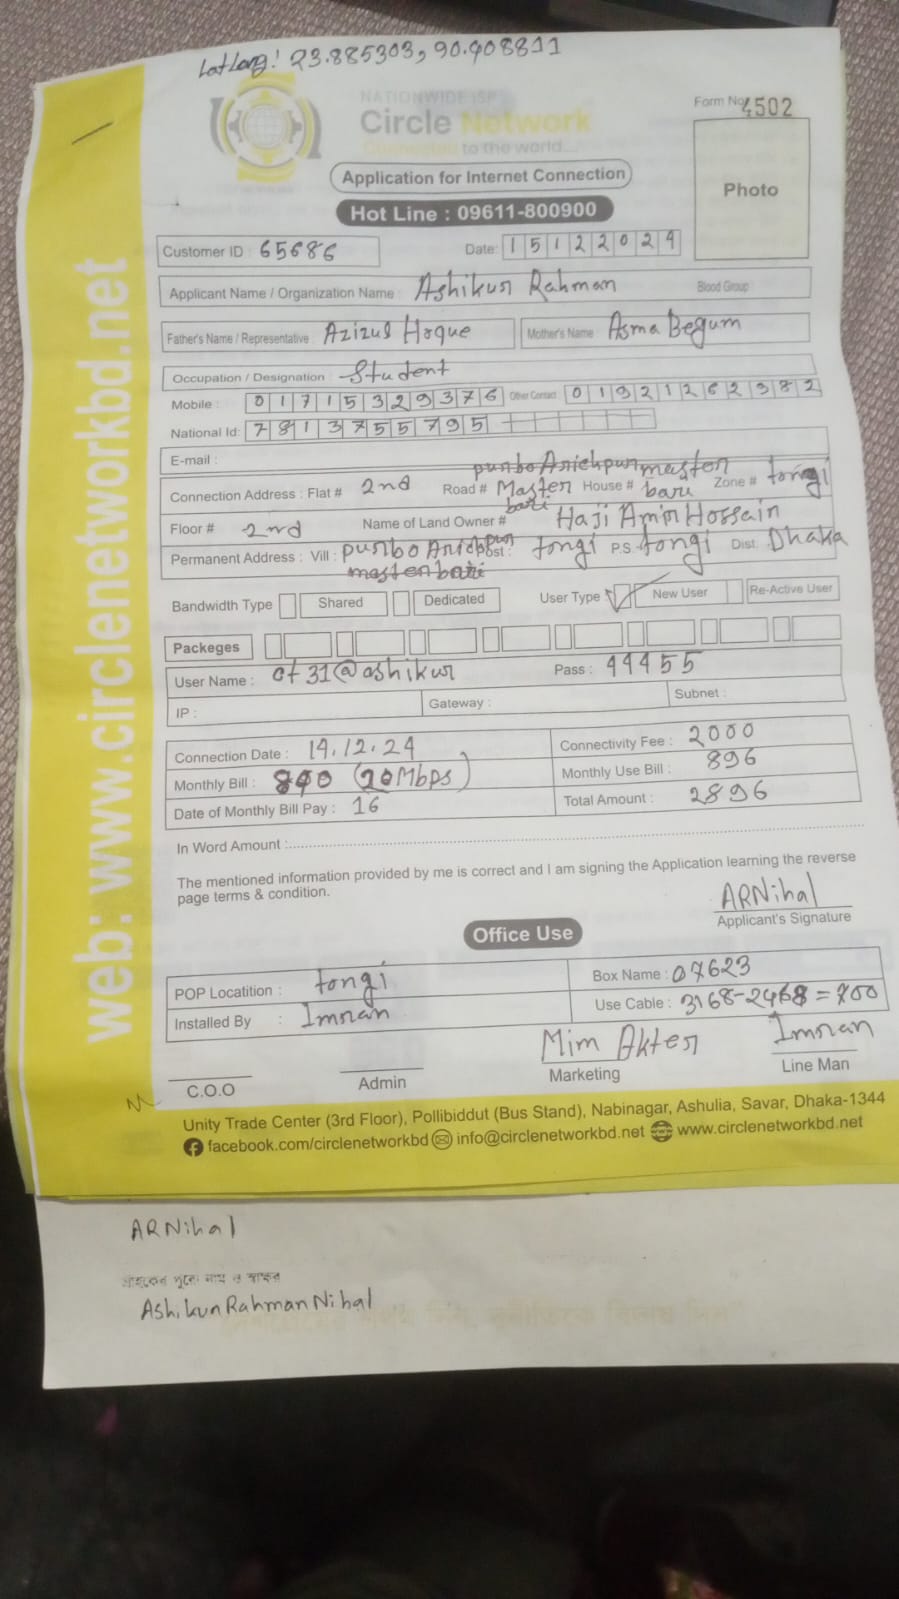 Lat Long: 23.885303, 90.408811
NATIONWIDE ISP
Circle Network
Connected to the world...
Form No. 4502
Photo
Application for Internet Connection
Hot Line : 09611-800900
Customer ID : 65686 Date: 15122024
Applicant Name / Organization Name : Ashikur Rahman Blood Group
Father's Name / Representative : Azizul Hoque Mother's Name : Asma Begum
Occupation / Designation : Student
Mobile : 01715329376 Other Contact 01921262382
National Id: 7813755795
E-mail :
purbo Anichpur master
Connection Address : Flat # 2nd Road # Master bari House # bari Zone # tongi
Floor # 2nd Name of Land Owner # Haji Amir Hossain
Permanent Address : Vill : purbo Anichpur Post : tongi P.S. tongi Dist: Dhaka
master bari
Bandwidth Type Shared Dedicated User Type New User Re-Active User
Packeges
User Name : ct31@ashikur Pass : 44455
IP : Gateway : Subnet :
Connection Date : 14.12.24 Connectivity Fee : 2000
Monthly Bill : 840 (20Mbps) Monthly Use Bill : 896
Date of Monthly Bill Pay : 16 Total Amount : 2896
In Word Amount :
The mentioned information provided by me is correct and I am signing the Application learning the reverse
page terms & condition.
ARNihal
Applicant's Signature
Office Use
POP Locatition : tongi Box Name : 07623
Installed By : Imran Use Cable : 3168-2468=700
Mim Akter Imran
C.O.O Admin Marketing Line Man
Unity Trade Center (3rd Floor), Pollibiddut (Bus Stand), Nabinagar, Ashulia, Savar, Dhaka-1344
facebook.com/circlenetworkbd info@circlenetworkbd.net www.circlenetworkbd.net
web: www.circlenetworkbd.net
ARNihal
গ্রাহকের পুরো নাম ও স্বাক্ষর
Ashikur Rahman Nihal